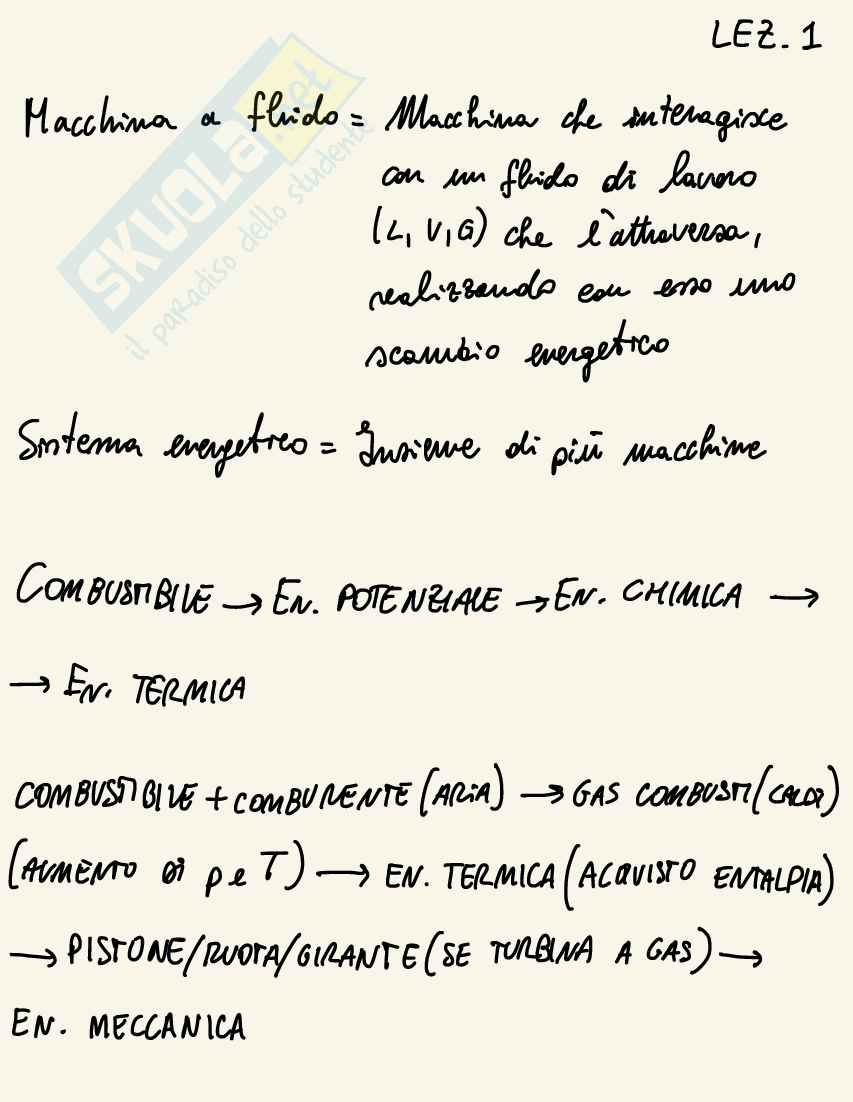 LEZ. 1
Macchina a fluido = Macchina che interagisce
con un fluido di lavoro
(L, V, G) che l'attraversa,
realizzando con esso uno
scambio energetico
SKUOLA.net
il paradiso dello studente
Sistema energetico = Insieme di più macchine
COMBUSTIBILE → EN. POTENZIALE → EN. CHIMICA →
→ EN. TERMICA
COMBUSTIBILE + COMBURENTE (ARIA) → GAS COMBUSTI (CALDI)
(AUMENTO DI p e T) → EN. TERMICA (ACQUISTO ENTALPIA)
→ PISTONE/RUOTA/GIRANTE (SE TURBINA A GAS) →
EN. MECCANICA